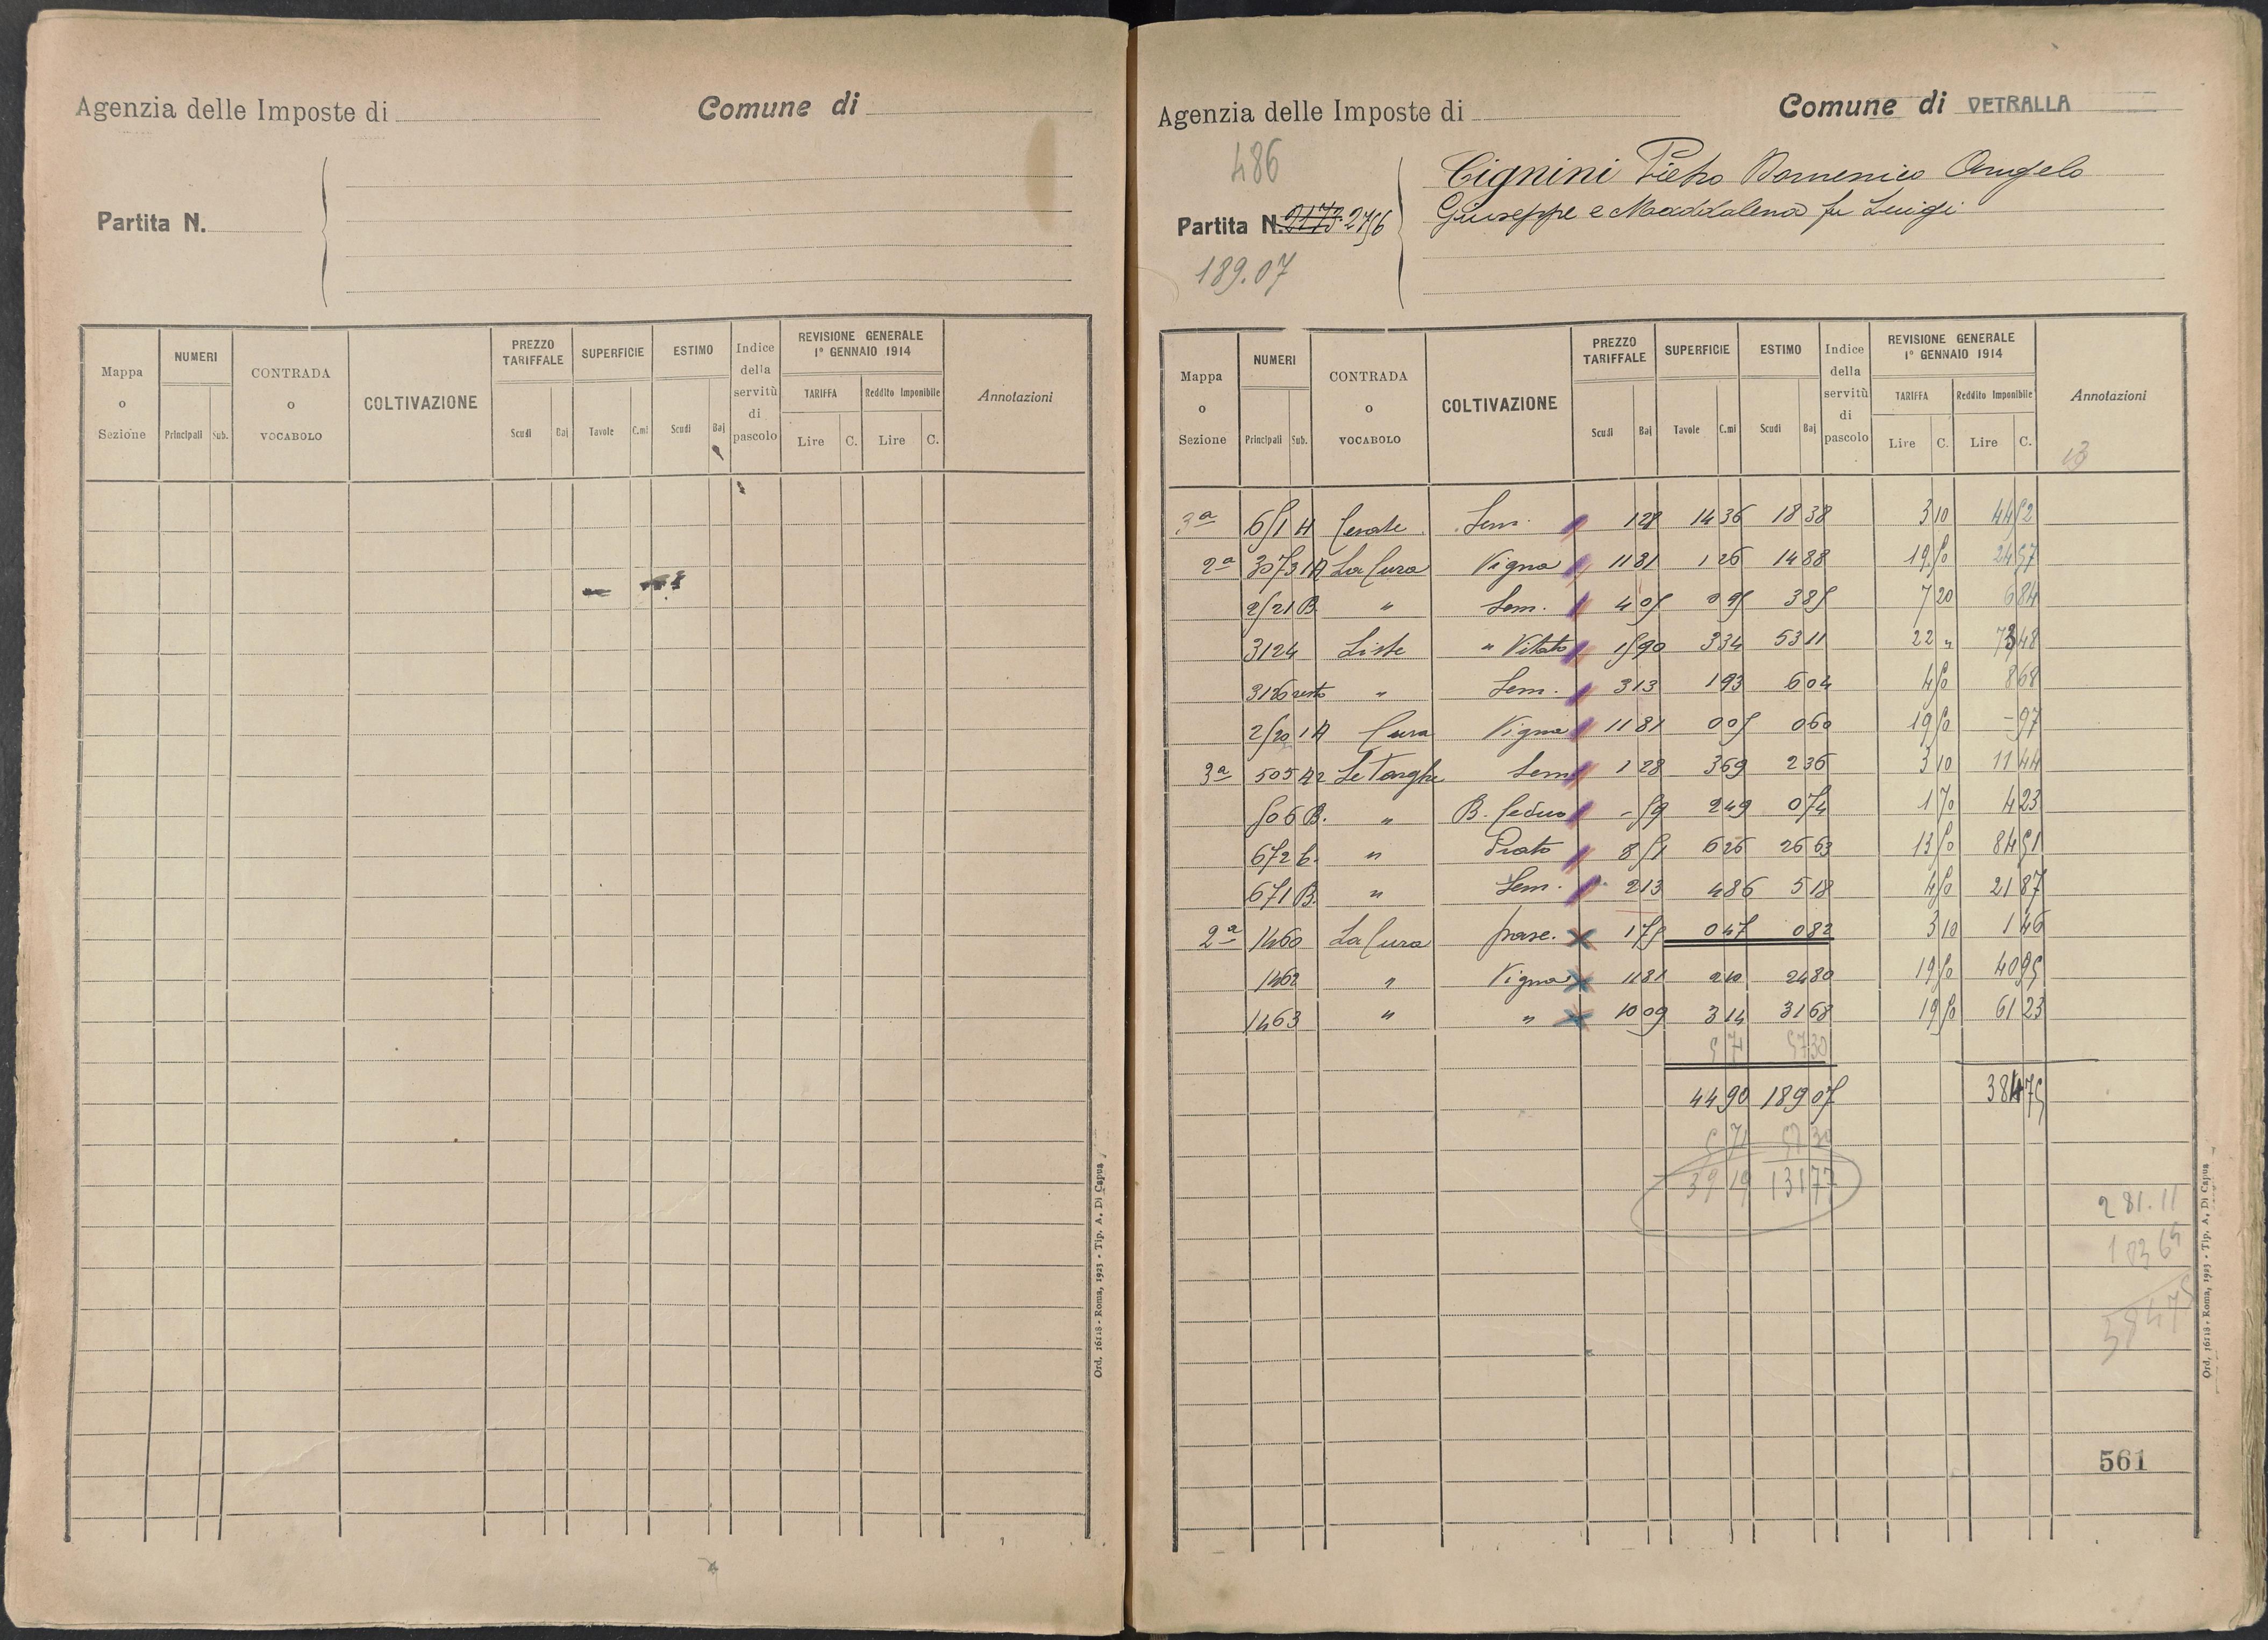 Agenzia delle Imposte di
Comune di
Partita N.
Mappa o Sezione
NUMERI
Principali Sub.
CONTRADA o VOCABOLO
COLTIVAZIONE
PREZZO TARIFFALE
Scudi Baj
SUPERFICIE
Tavole C.mi
ESTIMO
Scudi Baj
Indice della servitù di pascolo
REVISIONE GENERALE 1° GENNAIO 1914
TARIFFA Reddito Imponibile
Lire C. Lire C.
Annotazioni
Ord. 16118 - Roma, 1923 - Tip. A. Di Capua
Agenzia delle Imposte di
Comune di VETRALLA
486
Cignini Pietro Domenico Angelo
Giuseppe e Maddalena fu Luigi
Partita N. 2173 2756
189.07
Mappa o Sezione
NUMERI
Principali Sub.
CONTRADA o VOCABOLO
COLTIVAZIONE
PREZZO TARIFFALE
Scudi Baj
SUPERFICIE
Tavole C.mi
ESTIMO
Scudi Baj
Indice della servitù di pascolo
REVISIONE GENERALE 1° GENNAIO 1914
TARIFFA Reddito Imponibile
Lire C. Lire C.
Annotazioni
13
3a 651 Cerate Sem. 1 28 14 36 18 38 3 10 44 52
2a 3073 1A La Cura Vigna 11 81 1 26 14 88 19 50 24 57
2521 B " Sem. 4 05 0 95 3 85 7 20 6 84
3124 Liste " Vitato 15 90 3 34 53 11 22 " 73 48
3126 resto " Sem. 3 13 1 93 6 04 4 50 8 68
2520 1A Cura Vigna 11 81 0 05 0 60 19 50 - 97
3a 505 A2 Le Targhe Sem. 1 28 3 69 2 36 3 10 11 44
506 B. " B. Ceduo - 59 2 49 0 74 1 70 4 23
672 b. " Prato 8 51 6 26 26 63 13 50 84 51
671 B. " Sem. 2 13 4 86 5 18 4 50 21 87
2a 1460 La Cura pasc. 1 75 0 47 0 82 3 10 1 46
1462 " Vigna 11 81 2 10 24 80 19 50 40 95
1463 " " 10 09 3 14 31 68 19 50 61 23
5 71 57 30
44 90 189 07 384 75
5 71 57 30
39 19 131 77
281.11
103 64
384 75
561
Ord. 16118 - Roma, 1923 - Tip. A. Di Capua